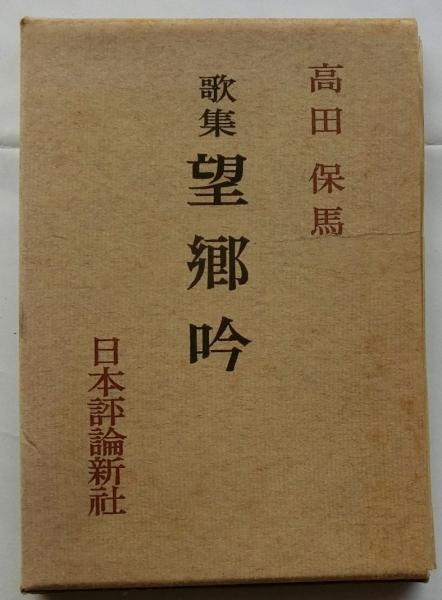 高田保馬
歌集 望鄕吟
日本評論新社